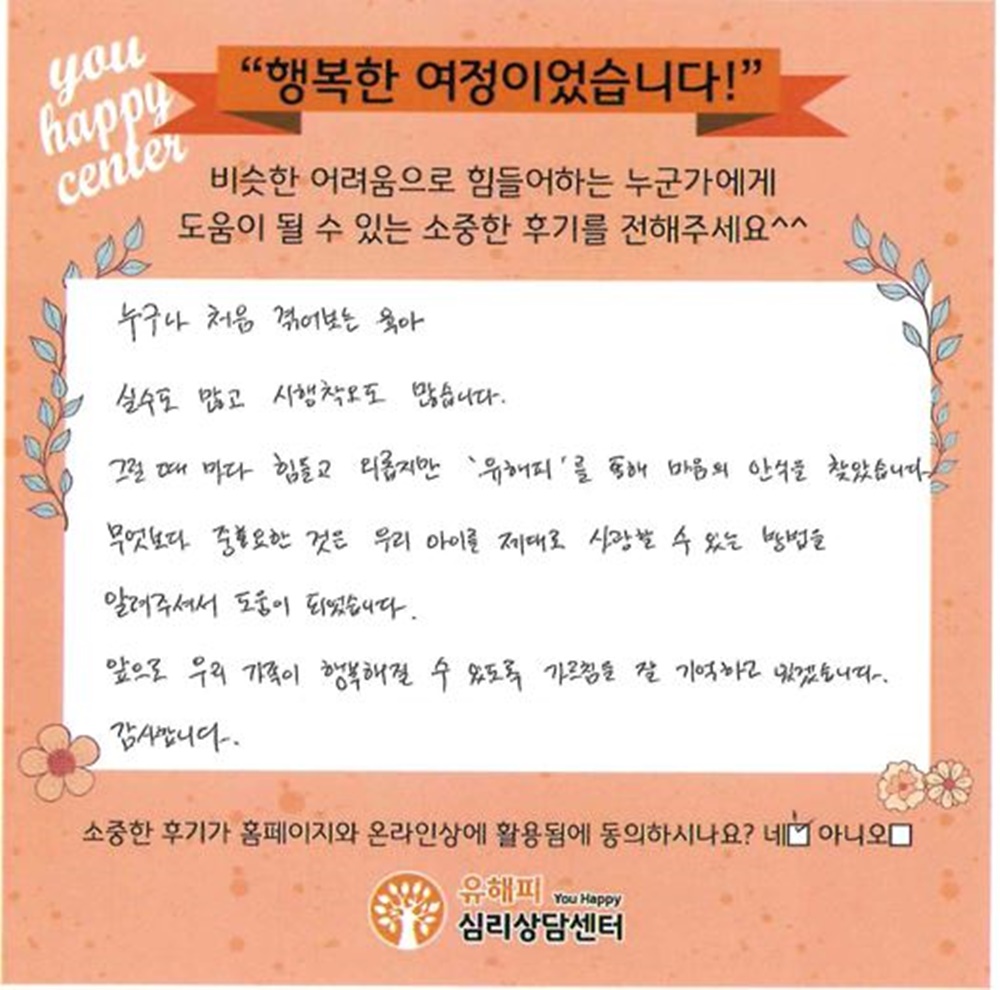 you
happy
center
“행복한 여정이었습니다!”
비슷한 어려움으로 힘들어하는 누군가에게
도움이 될 수 있는 소중한 후기를 전해주세요^^
누구나 처음 겪어보는 육아
실수도 많고 시행착오도 많습니다.
그럴 때 마다 힘들고 외롭지만 '유해피'를 통해 마음의 안식을 찾았습니다.
무엇보다 중요한 것은 우리 아이를 제대로 사랑할 수 있는 방법을
알려주셔서 도움이 되었습니다.
앞으로 우리 가족이 행복해질 수 있도록 가르침을 잘 기억하고 있겠습니다.
감사합니다.
소중한 후기가 홈페이지와 온라인상에 활용됨에 동의하시나요? 네☑ 아니오☐
유해피 You Happy
심리상담센터